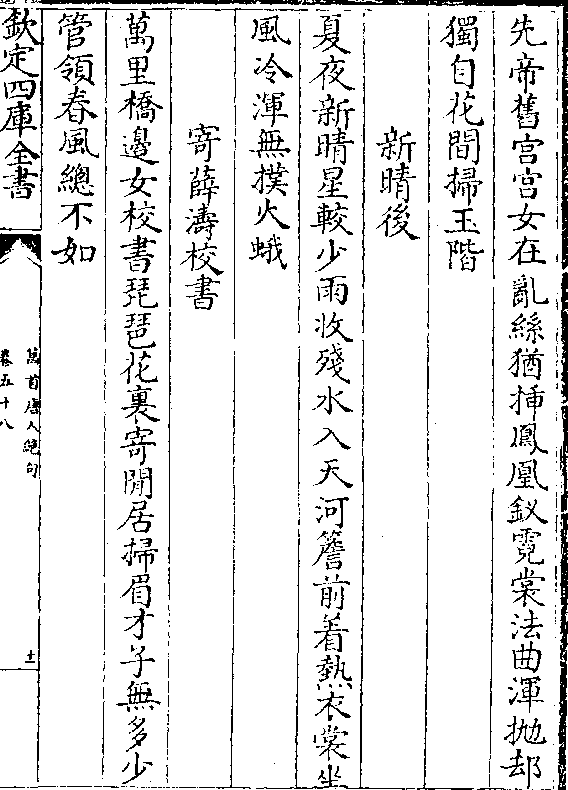 先帝舊宫宫女在亂絲猶挿鳳凰釵霓裳法曲渾抛却
獨自花間掃玉階
新晴後
夏夜新晴星較少雨收殘水入天河簷前着熱衣裳坐
風冷渾無撲火蛾
寄薛濤校書
萬里橋邊女校書琵琶花裏寄閒居掃眉才子無多少
管領春風總不如
欽定四庫全書
萬首唐人絶句
卷五十八
十一